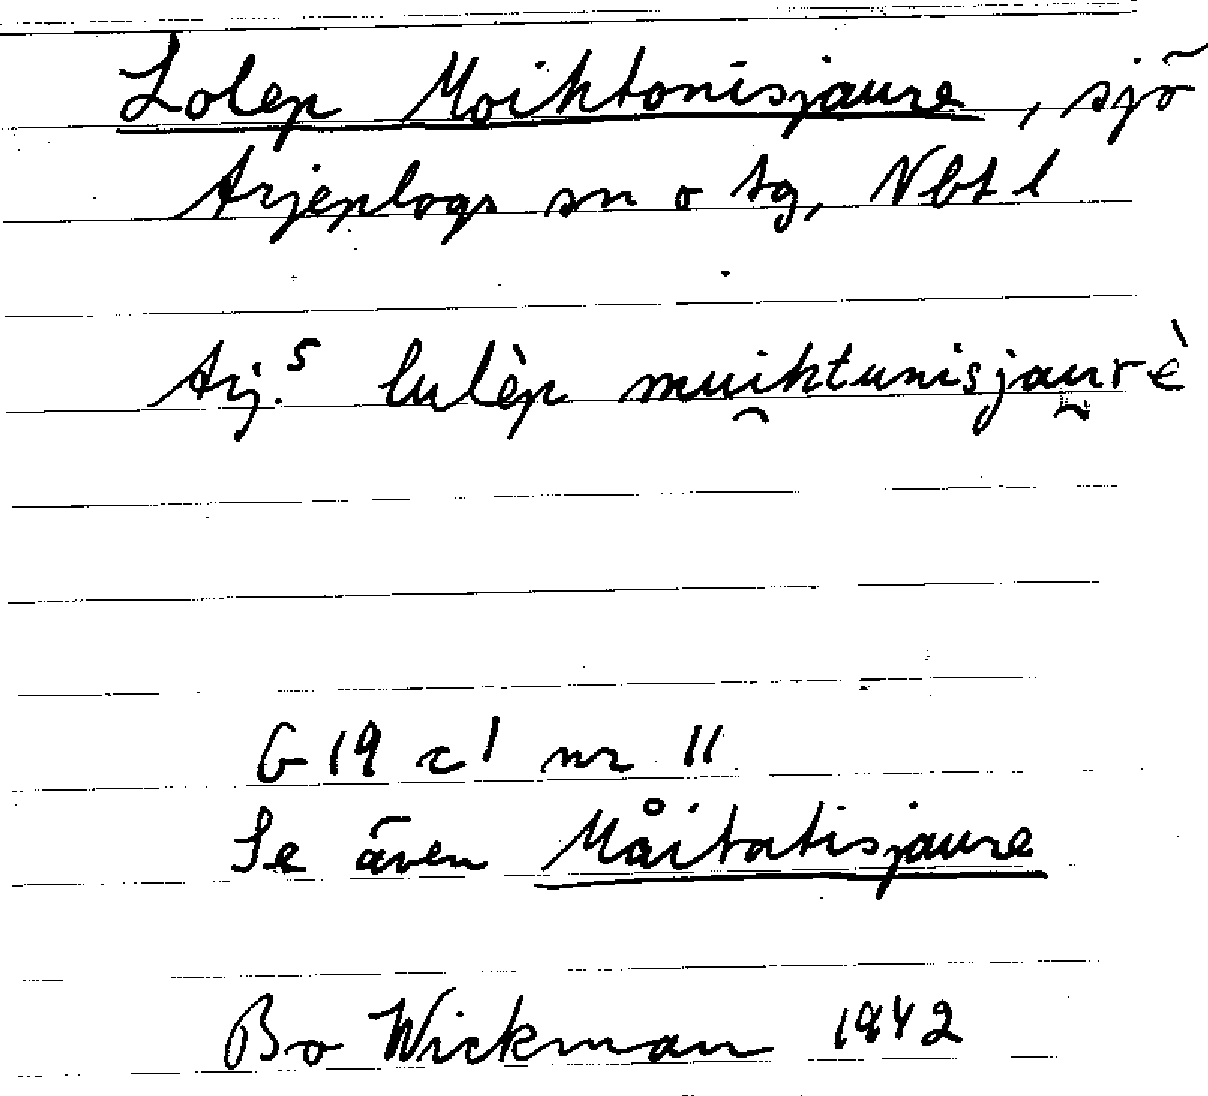 Lolep Moiktonisjaure, sjö
Arjeplogs sn o tg, Nbt l
Arj.S lulèp mui̯ktunisjau̯rè
G 19 c 1 nr 11
Se även Måitatisjaure
Bo Wickman 1942